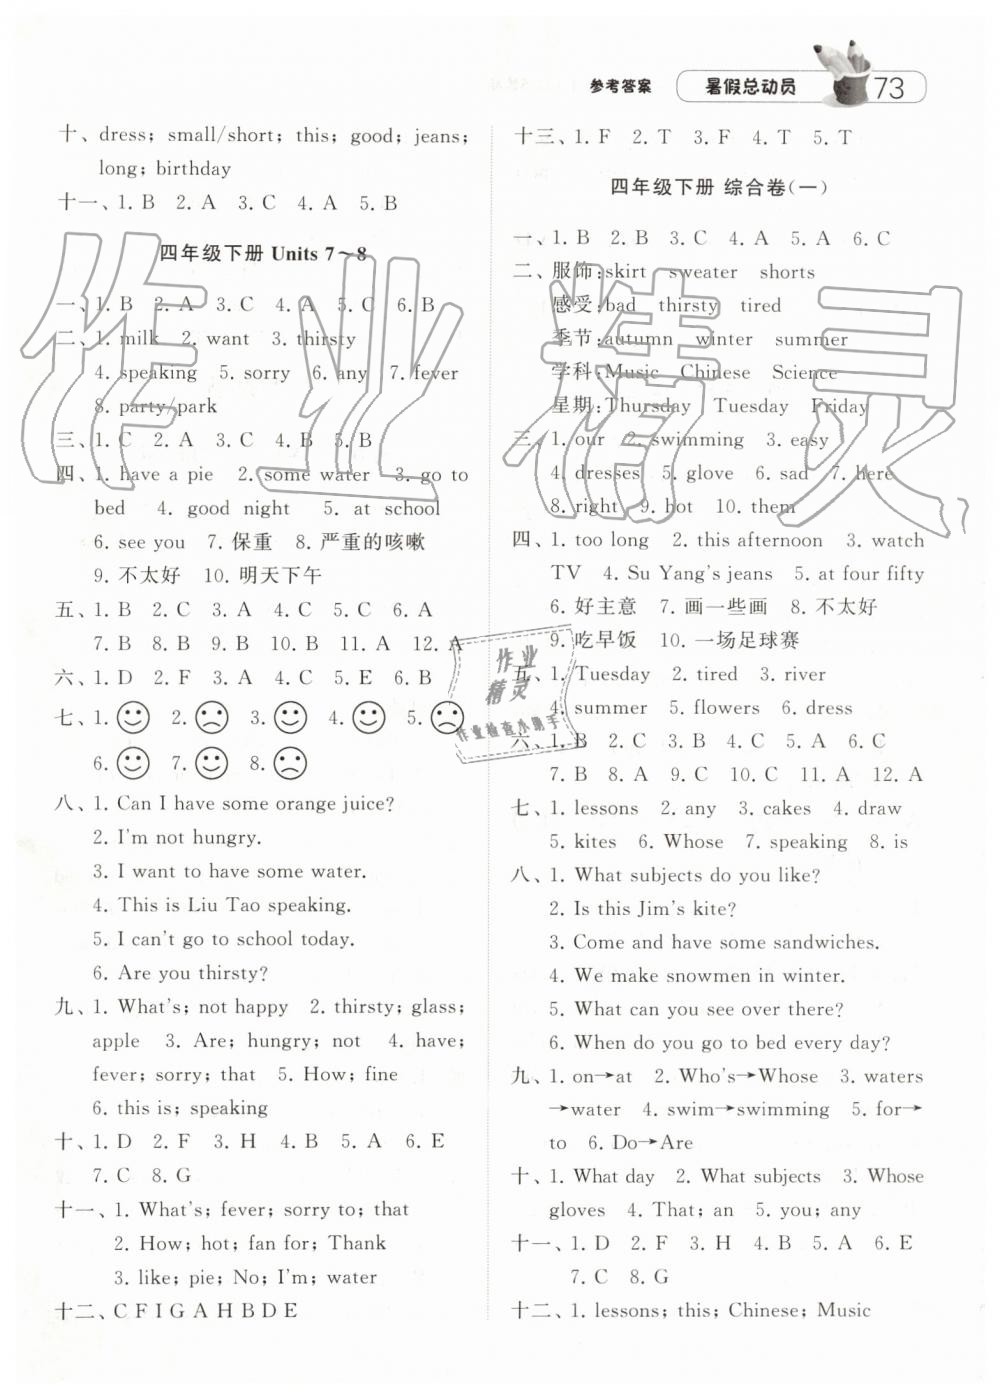 参考答案 暑假总动员 73
十、dress; small/short; this; good; jeans;
long; birthday
十一、1. B 2. A 3. C 4. A 5. B
四年级下册 Units 7～8
一、1. B 2. A 3. C 4. A 5. C 6. B
二、1. milk 2. want 3. thirsty
4. speaking 5. sorry 6. any 7. fever
8. party/park
三、1. C 2. A 3. C 4. B 5. B
四、1. have a pie 2. some water 3. go to
bed 4. good night 5. at school
6. see you 7. 保重 8. 严重的咳嗽
9. 不太好 10. 明天下午
五、1. B 2. C 3. A 4. C 5. C 6. A
7. B 8. B 9. B 10. B 11. A 12. A
六、1. D 2. F 3. A 4. C 5. E 6. B
七、1. 2. 3. 4. 5.
6. 7. 8.
八、1. Can I have some orange juice?
2. I'm not hungry.
3. I want to have some water.
4. This is Liu Tao speaking.
5. I can't go to school today.
6. Are you thirsty?
九、1. What's; not happy 2. thirsty; glass;
apple 3. Are; hungry; not 4. have;
fever; sorry; that 5. How; fine
6. this is; speaking
十、1. D 2. F 3. H 4. B 5. A 6. E
7. C 8. G
十一、1. What's; fever; sorry to; that
2. How; hot; fan for; Thank
3. like; pie; No; I'm; water
十二、C F I G A H B D E
十三、1. F 2. T 3. F 4. T 5. T
四年级下册 综合卷(一)
一、1. B 2. B 3. C 4. A 5. A 6. C
二、服饰:skirt sweater shorts
感受:bad thirsty tired
季节:autumn winter summer
学科:Music Chinese Science
星期:Thursday Tuesday Friday
三、1. our 2. swimming 3. easy
4. dresses 5. glove 6. sad 7. here
8. right 9. hot 10. them
四、1. too long 2. this afternoon 3. watch
TV 4. Su Yang's jeans 5. at four fifty
6. 好主意 7. 画一些画 8. 不太好
9. 吃早饭 10. 一场足球赛
五、1. Tuesday 2. tired 3. river
4. summer 5. flowers 6. dress
六、1. B 2. C 3. B 4. C 5. A 6. C
7. B 8. A 9. C 10. C 11. A 12. A
七、1. lessons 2. any 3. cakes 4. draw
5. kites 6. Whose 7. speaking 8. is
八、1. What subjects do you like?
2. Is this Jim's kite?
3. Come and have some sandwiches.
4. We make snowmen in winter.
5. What can you see over there?
6. When do you go to bed every day?
九、1. on→at 2. Who's→Whose 3. waters
→water 4. swim→swimming 5. for→
to 6. Do→Are
十、1. What day 2. What subjects 3. Whose
gloves 4. That; an 5. you; any
十一、1. D 2. F 3. H 4. B 5. A 6. E
7. C 8. G
十二、1. lessons; this; Chinese; Music
作业精灵
作业
精灵
作业检查小助手